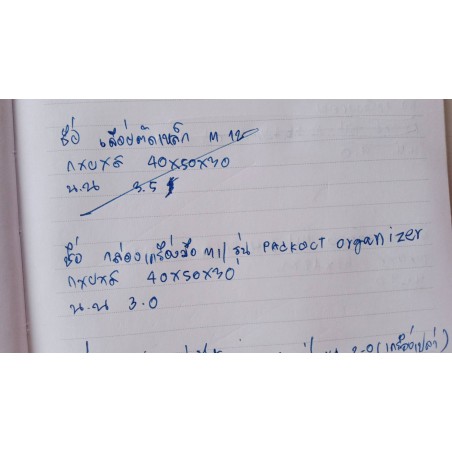 ชื่อ เลื่อยตัดเหล็ก M 12
กxยxส 40x50x30
น.น 3.5
ชื่อ กล่องเครื่องมือ M1/ รุ่น PACKOCT organizer
กxยxส 40x50x30
น.น 3.0
2.0 (เครื่องเปล่า)